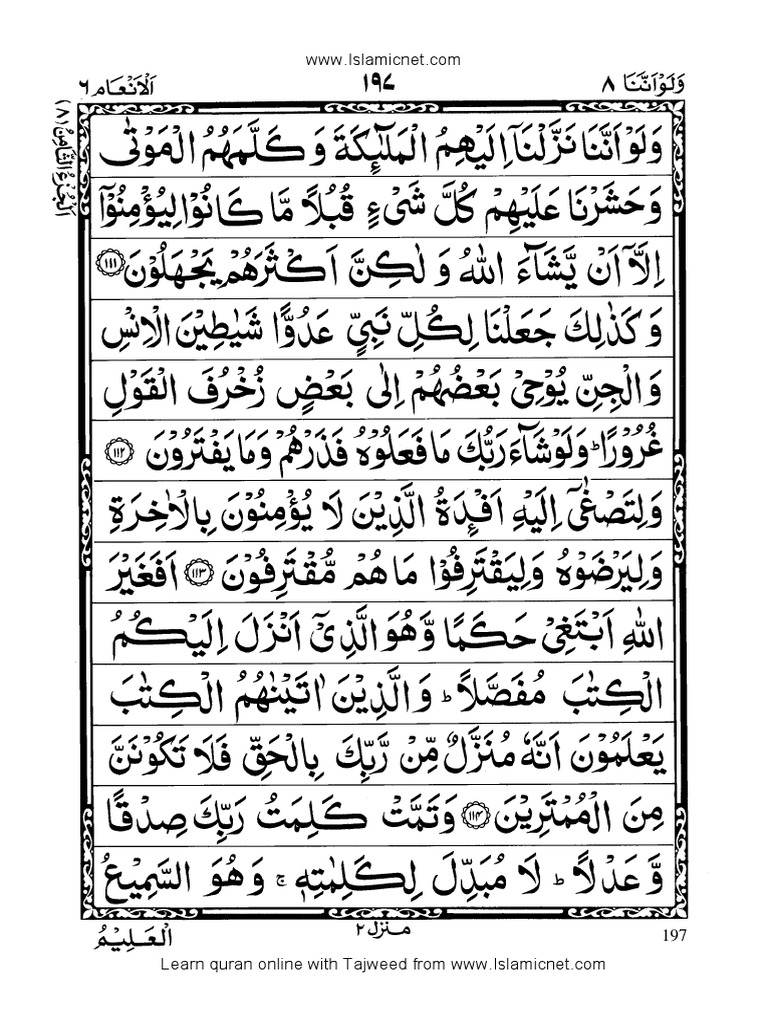 www.Islamicnet.com
وَلَوْاَنَّنَا ٨
١٩٧
اَلْاَنْعَام ٦
اَلْجُزْءُ الثَّامِنُ (٨)
وَلَوْ اَنَّنَا نَزَّلْنَاۤ اِلَيْهِمُ الْمَلٰٓئِكَةَ وَ كَلَّمَهُمُ الْمَوْتٰى
وَحَشَرْنَا عَلَيْهِمْ كُلَّ شَىْءٍ قُبُلًا مَّا كَانُوْا لِيُؤْمِنُوْۤا
اِلَّاۤ اَنْ يَّشَآءَ اللهُ وَ لٰكِنَّ اَكْثَرَهُمْ يَجْهَلُوْنَ ١١١
وَ كَذٰلِكَ جَعَلْنَا لِكُلِّ نَبِيٍّ عَدُوًّا شَيٰطِيْنَ الْاِنْسِ
وَالْجِنِّ يُوْحِيْ بَعْضُهُمْ اِلٰى بَعْضٍ زُخْرُفَ الْقَوْلِ
غُرُوْرًا ؕ وَلَوْ شَآءَ رَبُّكَ مَا فَعَلُوْهُ فَذَرْهُمْ وَمَا يَفْتَرُوْنَ ١١٢
وَلِتَصْغٰٓى اِلَيْهِ اَفْـِٕدَةُ الَّذِيْنَ لَا يُؤْمِنُوْنَ بِالْاٰخِرَةِ
وَلِيَرْضَوْهُ وَلِيَقْتَرِفُوْا مَا هُمْ مُّقْتَرِفُوْنَ ١١٣ اَفَغَيْرَ
اللهِ اَبْتَغِيْ حَكَمًا وَّهُوَ الَّذِيْۤ اَنْزَلَ اِلَيْكُمُ
الْكِتٰبَ مُفَصَّلًا ؕ وَالَّذِيْنَ اٰتَيْنٰهُمُ الْكِتٰبَ
يَعْلَمُوْنَ اَنَّهٗ مُنَزَّلٌ مِّنْ رَّبِّكَ بِالْحَقِّ فَلَا تَكُوْنَنَّ
مِنَ الْمُمْتَرِيْنَ ١١٤ وَتَمَّتْ كَلِمَتُ رَبِّكَ صِدْقًا
وَّعَدْلًا ؕ لَا مُبَدِّلَ لِكَلِمٰتِهٖ ۚ وَهُوَ السَّمِيْعُ
الْعَلِيْمُ
منزل ٢
197
Learn quran online with Tajweed from www.Islamicnet.com